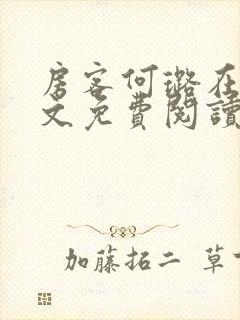 房客何璐在
文免費閱讀
加藤拓二 草